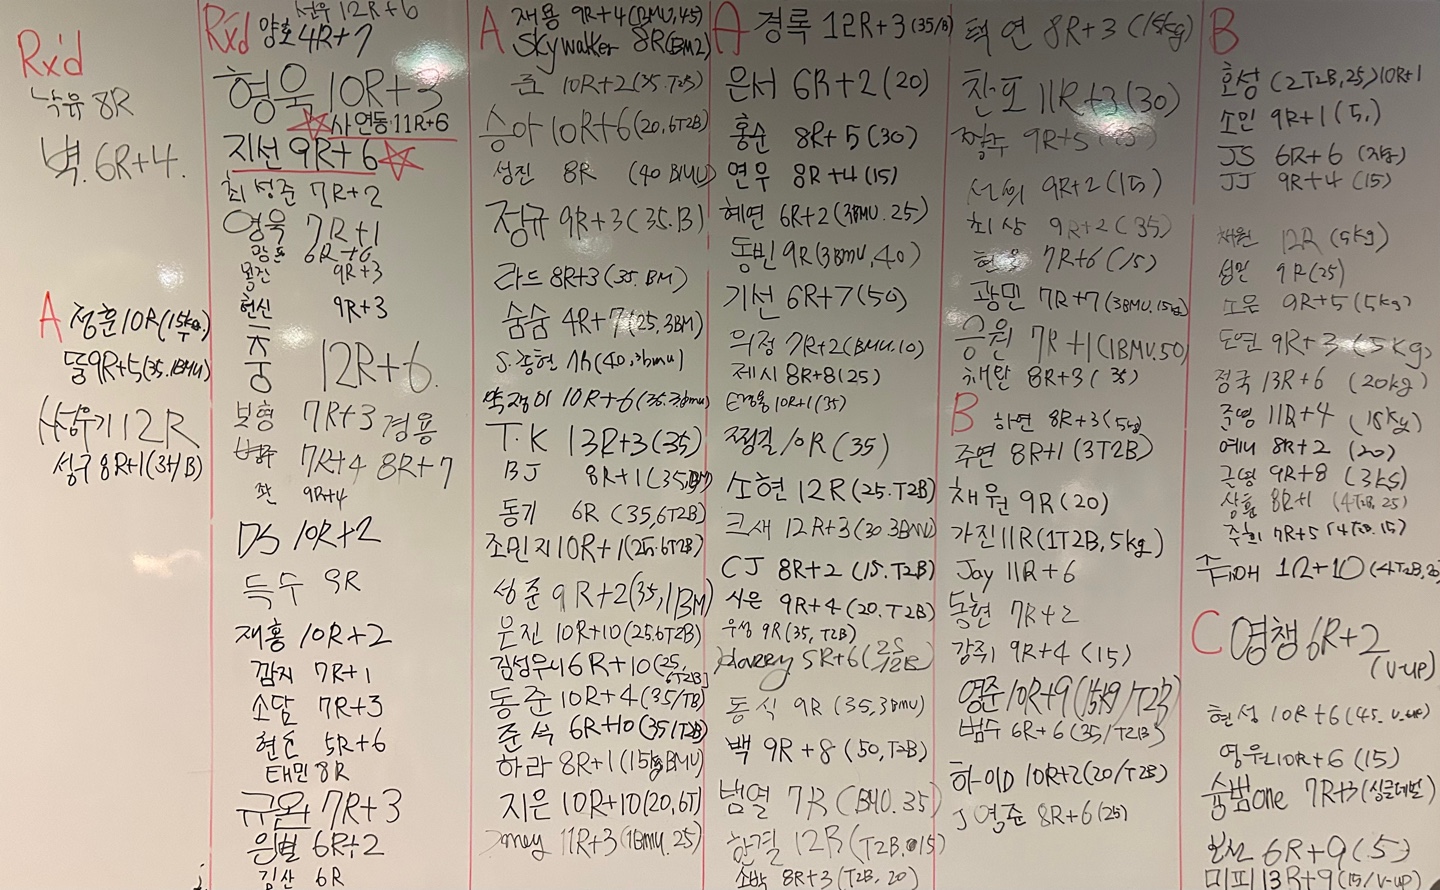 Rx'd
낙유 8R
벽. 6R+4.
A 청훈 10R(15kg.)
똘 9R+5(35.1BMU)
12R
성구 8R+1(3+/B)
Rx'd
선우 12R+6
양호 4R+7
형욱 10R+3
사연동 11R+6
지선 9R+6
최성준 7R+2
영욱 7R+1
6R+6
9R+3
현신 9R+3
쭝 12R+6.
보형 7R+3 경용
7R+4 8R+7
9R+4
DS 10R+2
득수 9R
재홍 10R+2
깜지 7R+1
소담 7R+3
5R+6
태민 8R
규원 7R+3
은별 6R+2
김산 6R
A 재용 9R+4(BMU,45)
Skywalker 8R(BM2)
10R+2(35.T25)
승아 10R+6(20,6T2B)
성진 8R (40 BMU)
정규 9R+3(35.B)
라드 8R+3(35.BM)
숨숨 4R+7(25.3BM)
S.종현 (40,3bmu)
10R+6
T.K 13R+3(35)
BJ 8R+1(35,BM)
동기 6R(35,6T2B)
조민지 10R+1(25.6T2B)
성준 9R+2(35,1BM)
문진 10R+10(25.6T2B)
김성우 16R+10(25,6T2B)
동준 10R+4(35/TB)
준석 6R+10(35/T2B)
하라 8R+1(15kg BMU)
지은 10R+10(20,6T)
11R+3(1BMU.25)
A 경록 12R+3(35/B)
은서 6R+2(20)
홍순 8R+5(30)
연우 8R+4(15)
혜연 6R+2(3BMU.25)
동빈 9R(3BMU,40)
기선 6R+7(50)
의정 7R+2(BMU.10)
제시 8R+8(25)
10R+1(35)
쩡길 10R(35)
소현 12R(25.T2B)
크새 12R+3(30 3BMU)
CJ 8R+2(15.T2B)
시은 9R+4(20.T2B)
우성 9R(35,T2B)
5R+6
동식 9R(35,3BMU)
백 9R+8(50,T2B)
범열 7R(BMU.35)
한결 12R(T2B.15)
소박 8R+3(T2B,20)
택연 8R+3(15kg)
찬포 11R+3(30)
정수 9R+5
선희 9R+2(15)
최상 9R+2(35)
7R+6(15)
광민 7R+7(3BMU.15kg)
승원 7R+1(1BMU.50)
채완 8R+3(35)
B 하연 8R+3(5kg)
주연 8R+1(3T2B)
채원 9R(20)
가진 11R(1T2B,5kg)
Jay 11R+6
독현 7R+2
강쥐 9R+4(15)
영준 10R+9(15kg/T2B)
범수 6R+6(35/T2B)
하이D 10R+2(20/T2B)
J영준 8R+6(25)
B
호성 (2T2B,25)10R+1
소민 9R+1(5,)
JS 6R+6
JJ 9R+4(15)
채원 12R(5kg)
성민 9R(25)
소운 9R+5(5kg)
도연 9R+3(5kg)
정국 13R+6(20kg)
준영 11R+4(15kg)
예니 8R+2(20)
근영 9R+8(3KS)
상훈 8R+1(4T2B,25)
주희 7R+5(4T2B.15)
1R+10(4T2B,20
C 영챙 6R+2
(V-up)
현성 10R+6(45.V-up)
영우 10R+6(15)
숨범one 7R+3(싱글데벌)
6R+9(5)
미피 13R+9(15/V-UP)